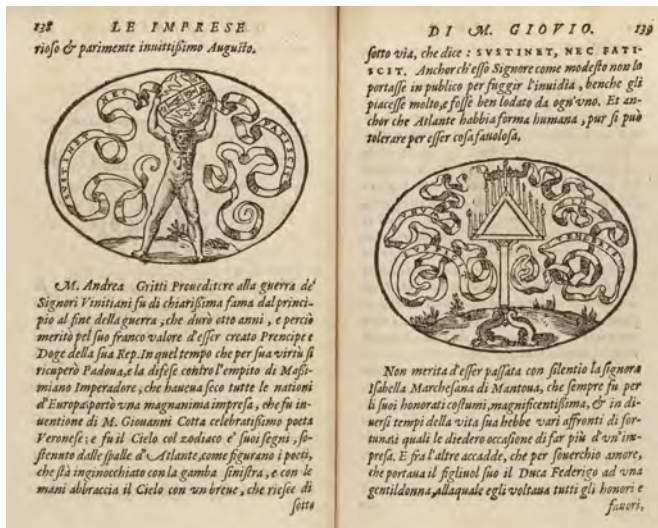 138 LE IMPRESE
rioso & parimente inuittißimo Augusto.
SVSTINET NEC FATISCIT
M. Andrea Gritti Proueditore alla guerra de'
Signori Vinitiani fu di chiarißima fama dal princi-
pio al fine della guerra, che durò otto anni, e perciò
meritò pel suo franco valore d'esser creato Prencipe e
Doge della sua Rep. In quel tempo che per sua virtù si
ricuperò Padoua, e la difese contro l'empito di Maßi-
miano Imperadore, che haueua seco tutte le nationi
d'Europa: portò vna magnanima impresa, che fu in-
uentione di M. Giouanni Cotta celebratißimo poeta
Veronese; e fu il Cielo col zodiaco e' suoi segni, so-
stenuto dalle spalle d'Atlante, come figurano i poeti,
che stà inginocchiato con la gamba sinistra, e con le
mani abbraccia il Cielo con vn breue, che riesce di
sotto
DI M. GIOVIO. 139
sotto via, che dice: SVSTINET, NEC FATI-
SCIT. Anchor ch'esso Signore come modesto non lo
portasse in publico per fuggir l'inuidia, benche gli
piacesse molto, e fosse ben lodato da ogn'vno. Et an-
chor che Atlante habbia forma humana, pur si può
tolerare per esser cosa fauolosa.
Non merita d'esser passata con silentio la signora
Isabella Marchesana di Mantoua, che sempre fu per
li suoi honorati costumi, magnificentißima, & in di-
uersi tempi della vita sua hebbe vari affronti di for-
tuna: i quali le diedero occasione di far più d'vn'im-
presa. E fra l'altre accadde, che per souerchio amore,
che portaua il figliuol suo il Duca Federigo ad vna
gentildonna, alla quale egli voltaua tutti gli honori e
fauori,